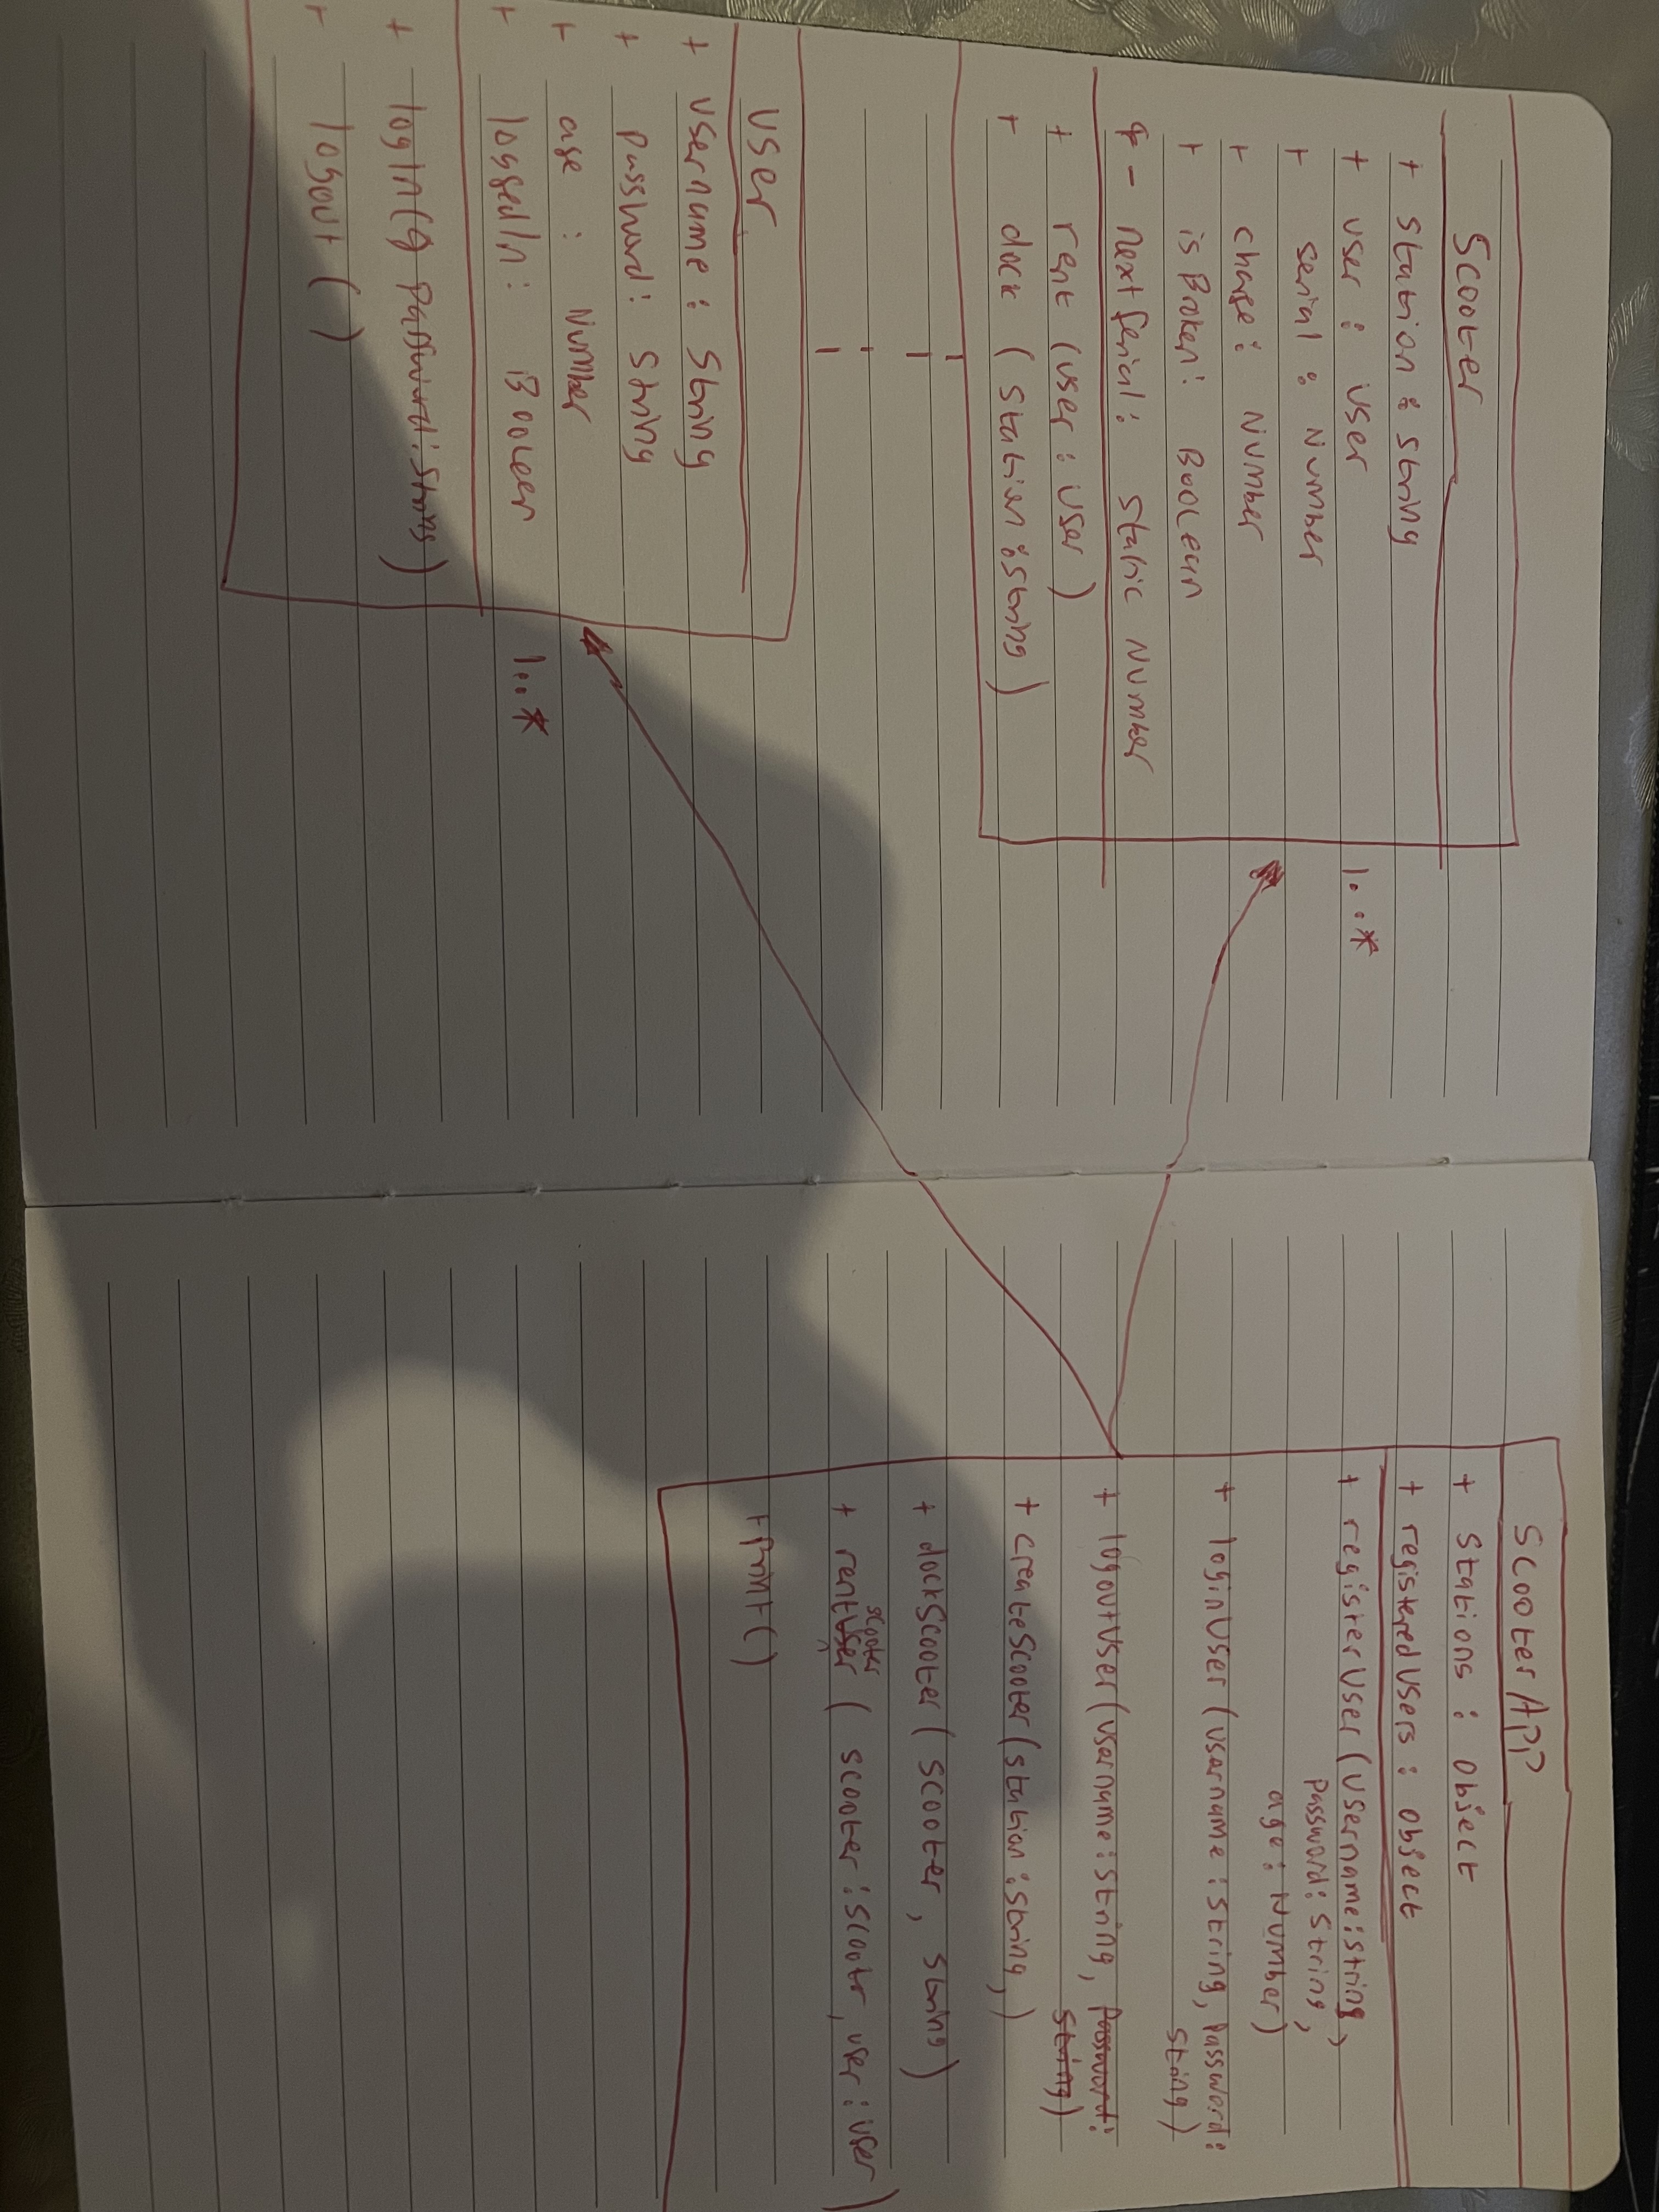 Scooter
+ station : string
+ user : user
+ serial : Number
+ charge : Number
+ isBroken : Boolean
- nextSerial : static Number
+ rent (user : user)
+ dock (station : string)
1..*
user
+ username : string
+ password : string
+ age : Number
+ loggedIn : Booleen
+ login( password : string)
+ logout ( )
1..*
ScooterAPP
+ stations : object
+ registeredUsers : object
+ registerUser (username : string,
password : string,
age : Number)
+ loginUser (username : string, password :
string)
+ logoutUser (username : string, password :
string)
+ createScooter (station : string, )
+ dockScooter ( scooter, string)
scooter
+ rentUser ( scooter : scootr, user : user)
+ print ( )